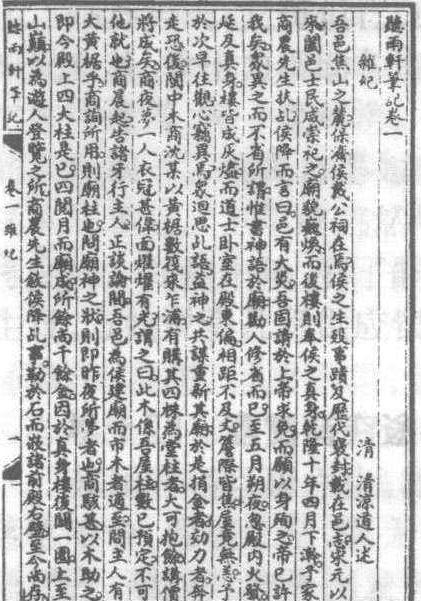 聽雨軒筆記卷一
雜紀 清 清涼道人述
吾邑焦山之麓保齋侯戴公祠在焉侯之生歿事蹟及歷代褒封載在邑志宋元以
來闔邑士民咸崇祀之廟貌巍煥而後樓則奉侯之真身乾隆十年四月下澣予家
商農先生扶乩侯降而言曰邑有大災吾固請於上帝求免而願以身殉之帝已許
我矣衆異之而不省所謂惟書神語於廟勸人修省而已至五月朔夜忽殿內火發
延及真身樓皆成灰燼而道士臥室在殿東偏相距不及丈簷際皆焦屋竟無恙予
於次早往觀心竊異焉衆迴思乩語益神之共謀重新其廟於是捐金者効力者奔
走恐後閩中木商沈某以黃楊數筏來乍浦有購其四株為堂柱者大可抱餘講價
將成矣商夜夢一人衣冠甚偉面燿燿有光謂之曰此木係吾屋柱數已預定不可
他就也商晨起告諸牙行主人正談論間吾邑為侯建廟而市木者適至問主人有
大黃楊乎商詢所用則廟柱也問廟神之狀則即昨夜所夢者也商駭甚以木助之
即今殿上四大柱是已四閱月而廟成所餘尚千餘金因於真身樓後闢一園上至
山巔以為遊人登覽之所商農先生敘侯降乩事勒於石而嵌諸前殿右壁至今尚存
聽雨軒筆記 卷一雜紀 一